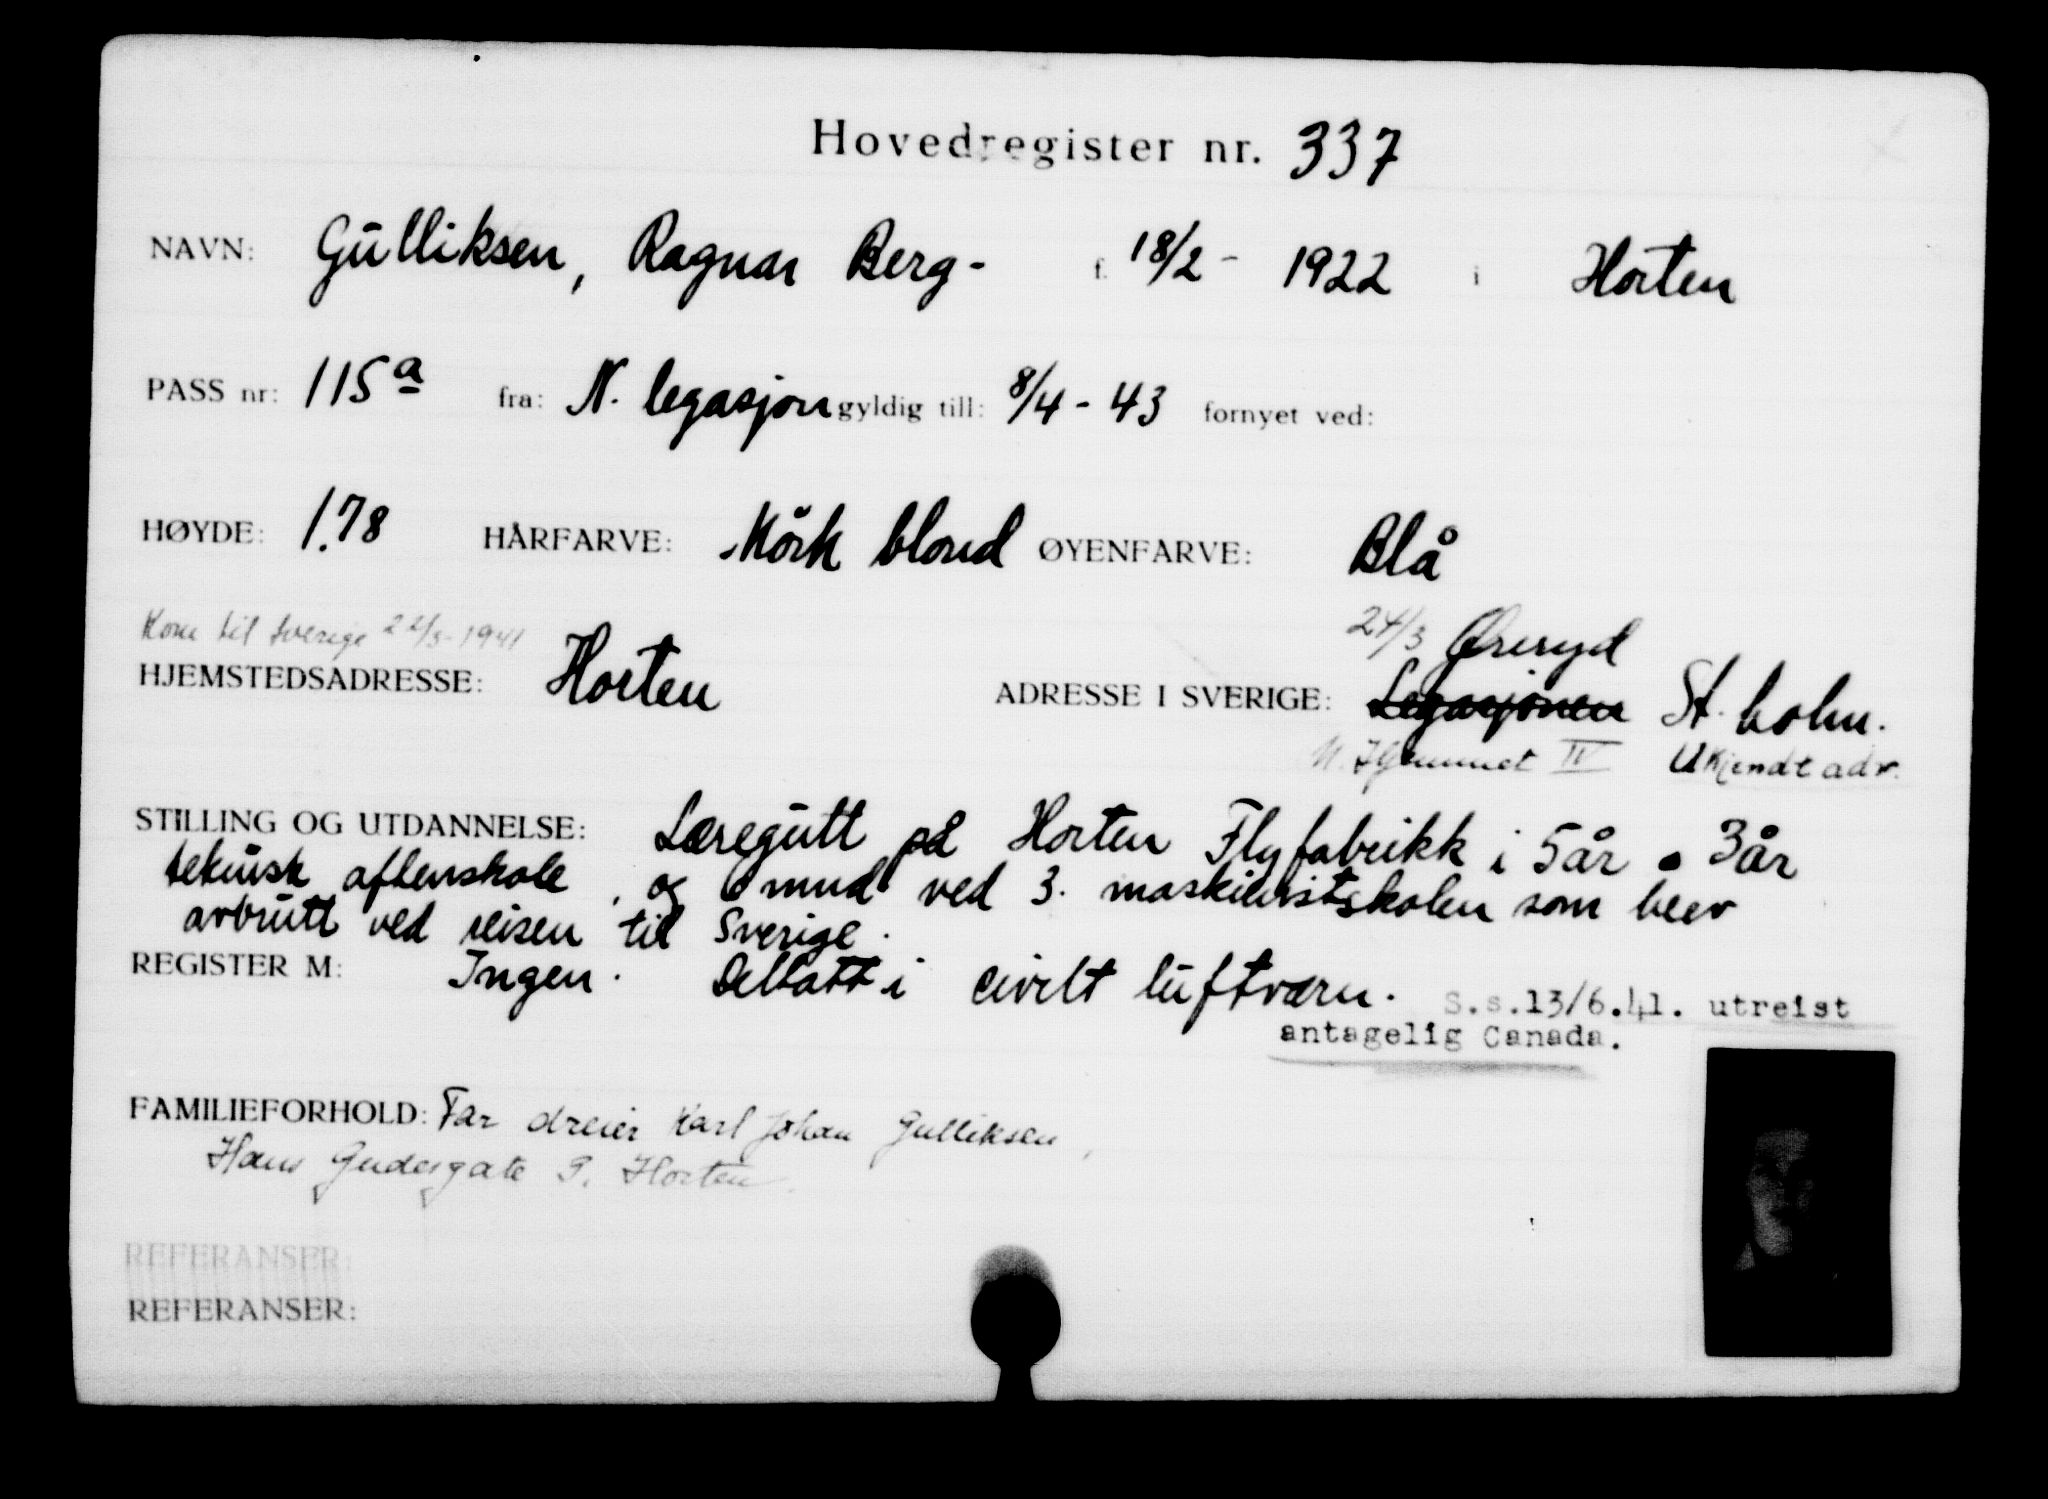 Hovedregister nr. 337
NAVN: Gulliksen, Ragnar Berg- f. 18/2 - 1922 i Horten
PASS nr: 115a fra: N. legasjon gyldig till: 8/4 - 43 fornyet ved:
HØYDE: 1.78 HÅRFARVE: Mörk blond ØYENFARVE: Blå
Kom til Sverige 22/3-1941 24/3 Øreryd
HJEMSTEDSADRESSE: Horten ADRESSE I SVERIGE: Legasjonen St.holm.
N. Hjemmet IV Ukjendt adr.
STILLING OG UTDANNELSE: Læregutt på Horten Flyfabrikk i 5 år 3 år
teknisk aftenskole, og 6 mnd ved 3. maskinistskolen som blev
avbrutt ved reisen til Sverige.
REGISTER M: Ingen. Deltatt i civilt luftværn. S.s.13/6.41. utreist
antagelig Canada.
FAMILIEFORHOLD: Far dreier Karl Johan Gulliksen,
Hans Gudesgate 9. Horten.
REFERANSER:
REFERANSER: